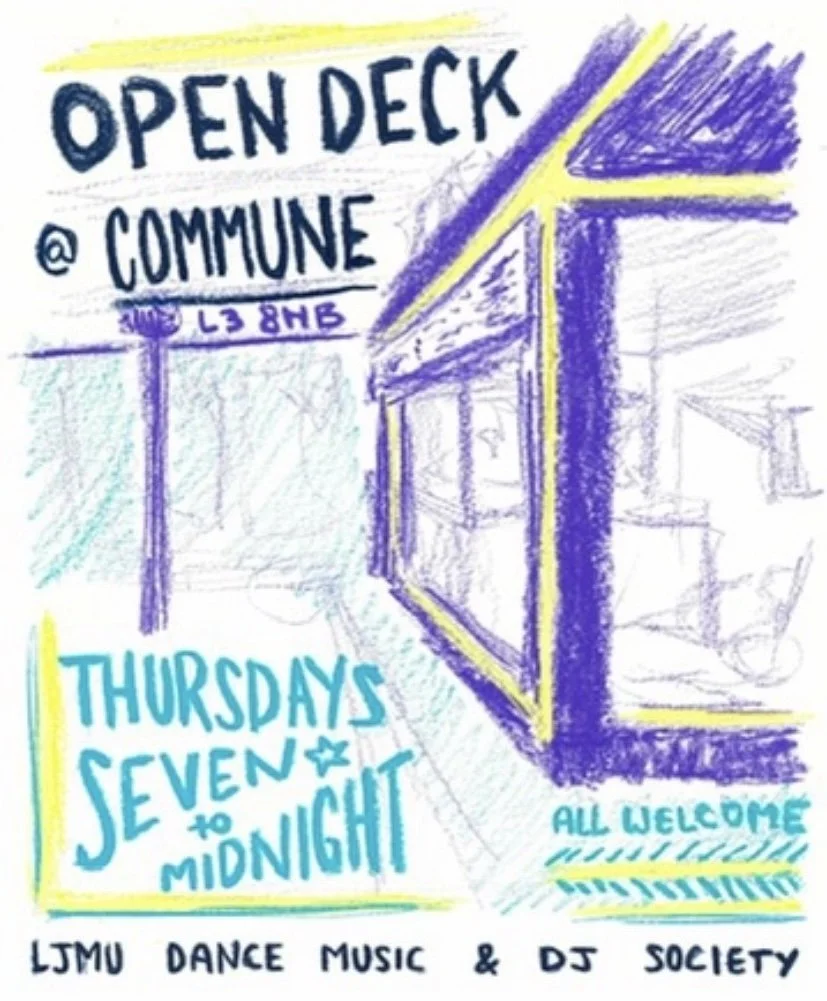 OPEN DECK
@ COMMUNE
L3 8HB
THURSDAYS
SEVEN
to
MIDNIGHT
ALL WELCOME
LJMU DANCE MUSIC & DJ SOCIETY